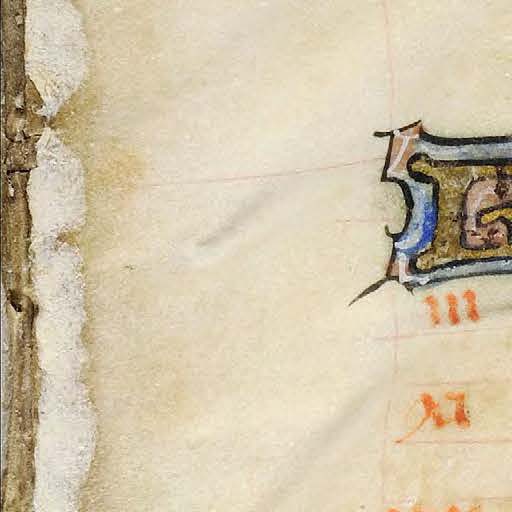 iii
xi